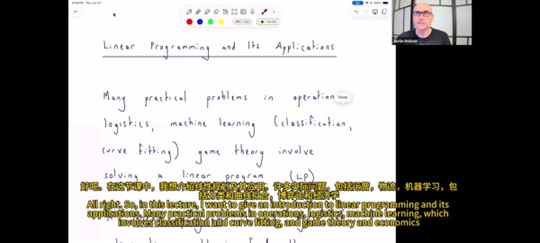 Linear Programming and Its Applications
Many practical problems in operation
logistics, machine learning (classification,
curve fitting) game theory involve
solving a linear program (LP)
好吧。在这节课中，我想介绍线性规划及其应用。许多实际问题，包括运营，物流，机器学习，包
All right. So, in this lecture, I want to give an introduction to linear programming and its
applications. Many practical problems in operations, logistics, machine learning, which
involves classification and curve fitting, and game theory and economics